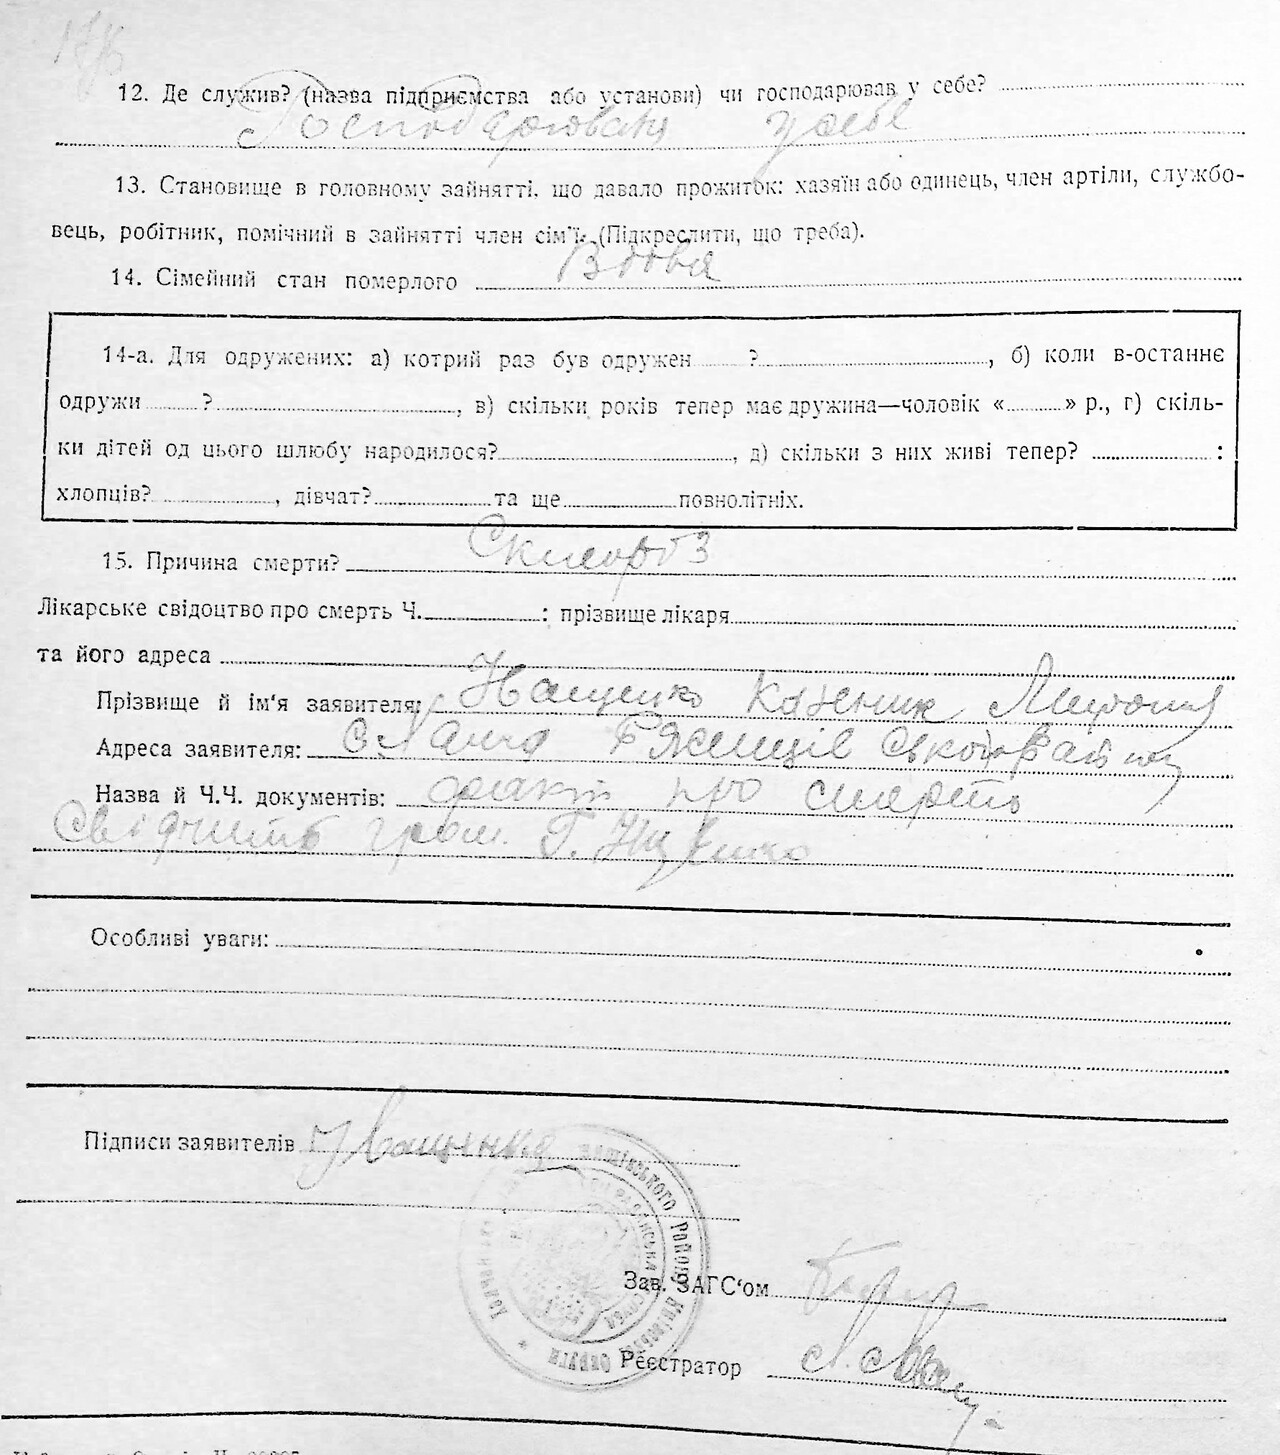 12. Де служив? (назва підприємства або установи) чи господарював у себе?
Господарювання у себе
13. Становище в головному зайнятті, що давало прожиток: хазяїн або одинець, член артіли, службо-
вець, робітник, помічний в зайнятті член сім'ї. (Підкреслити, що треба).
14. Сімейний стан померлого Вдова
14-а. Для одружених: а) котрий раз був одружен ?, б) коли в-останнє
одружи ?, в) скільки років тепер має дружина—чоловік « » р., г) скіль-
ки дітей од цього шлюбу народилося?, д) скільки з них живі тепер? :
хлопців?, дівчат? та ще повнолітніх.
15. Причина смерти? Склороз
Лікарське свідоцтво про смерть Ч. : прізвище лікаря
та його адреса
Прізвище й ім'я заявителя:
Адреса заявителя:
Назва й Ч.Ч. документів: факт про смерть
свідчить гром. Г.
Особливі уваги:
Підписи заявителів Іващенко
Зав. ЗАГС'ом
Реєстратор